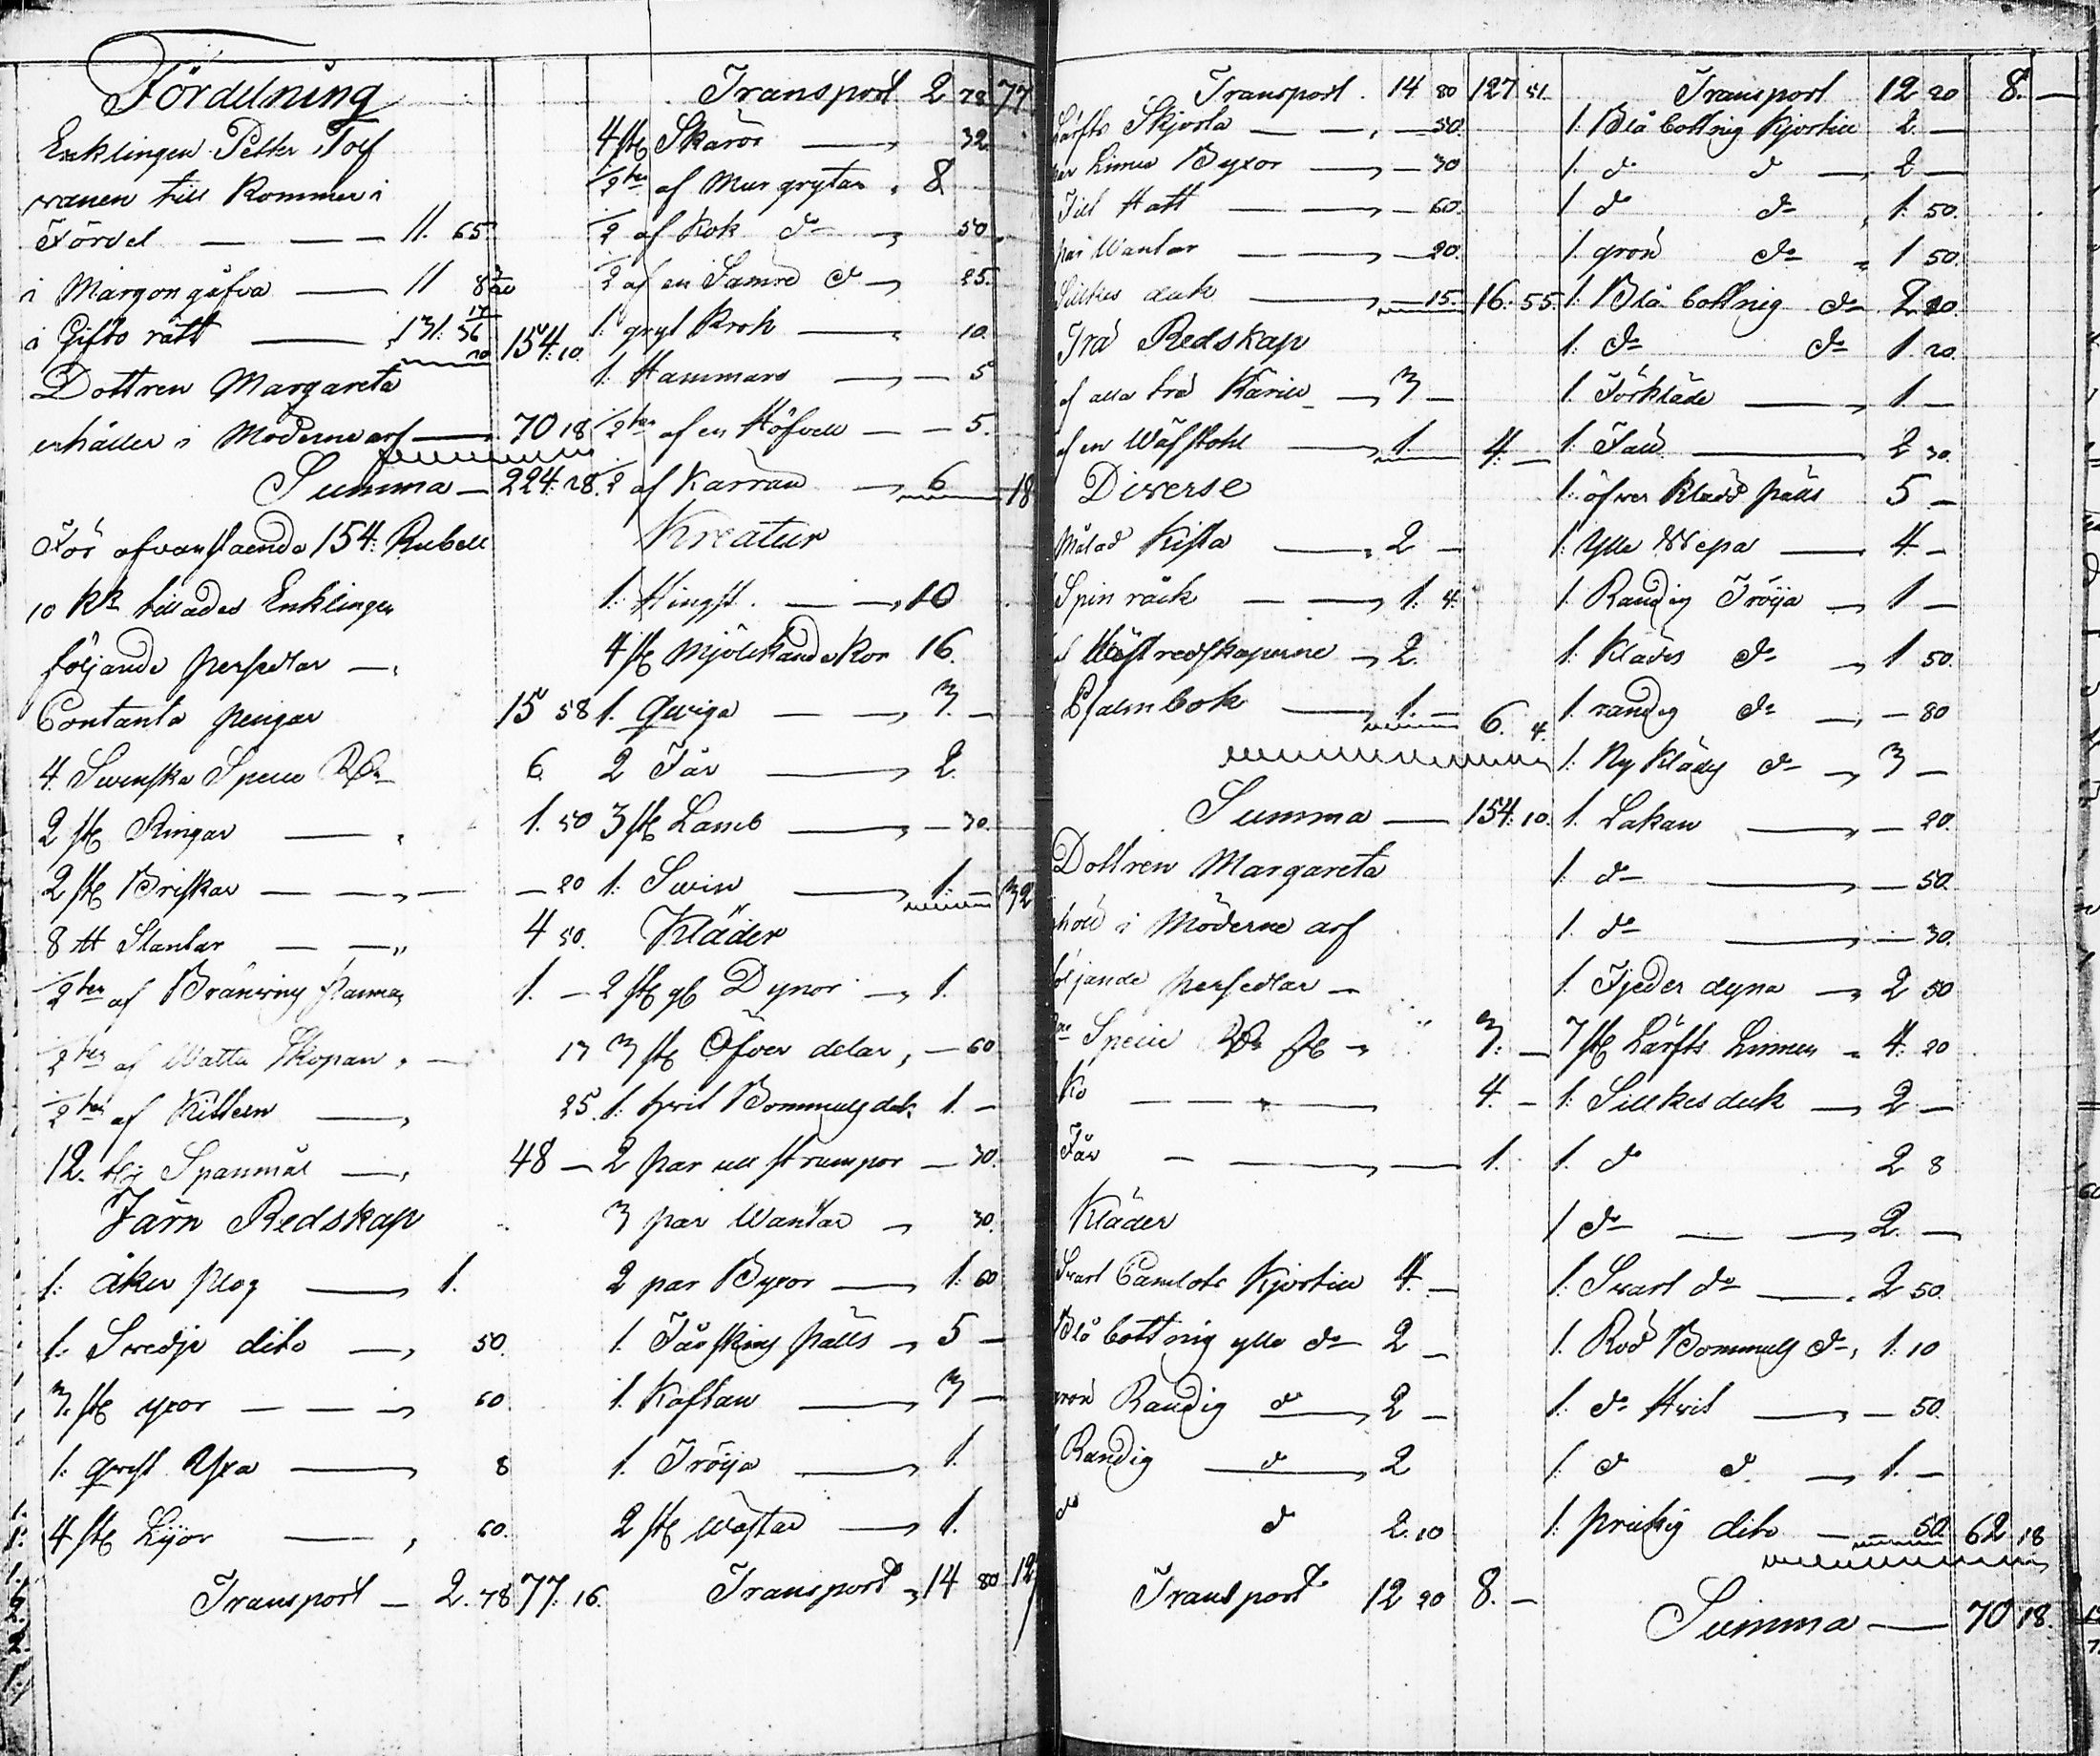 Fördelning
Enklingen Petter Tolf
vranen till Kommer i
Fördel — — — 11. 65.
i Margongåfva — 11 8
i Gifto rätt — 131. 36 154:10
Dottren Margareta
erhåller i Möderne arf — 70 18
Summa — 224:28.
För ofvanstaende 154: Rubell
10 kk tillades Enklingen
följande persedlar —
Contanta pengar 15 58
4. Swenska Specie RD 6.
2 st Ringar — 1. 50
2 st Briskar — — 20
8 tt Slantar — — 4 50.
2ten af Bränwins panna 1. —
2ten af Watta Skopan — 13
2ten af Kitteln — 25.
12. Spanmål — 48 —
Järn Redskap
1: åker plog — 1.
1: Swedje dito — 50.
3. st yxor — — 60.
1: qwist Yxa — 8
4 st Lijor — 60.
Transport — 2. 78 77. 16.
Transport 2 78 77
4 st Skäror — 32
2ten af Mur grytan 8
2 af Kok do 50.
2 af en Samre do 25.
1: gryt Krok — 10.
1: Hammare — 5
2ten af en Höfvell — 5.
2 af Karran — 6 18
Kreatur
1: Hingst. — 10
4 st Mjölkande Kor 16.
1. Qwiga — 3. —
2 Får — 2.
3 st Lamb — 30.
1: Swin — 1. — 32
Kläder
2 st Dynor — 1.
3 st Öfver delar, — 60
1: hvit Bommulls duk 1. —
2 par ull strumpor — 30.
3 par Wantar — 30.
2 par Byxor — 1: 60
1. Fårskins pälls — 5 —
1. Kaftan — 3 —
1. Tröija — 1.
2 st Wästar — 1.
Transport 14 80 12
Transport. 14 80 127 51.
Lärfts Skjorta — — 50.
par Linne Byxor — 30
Filt Hatt — — 60.
par Wantar — — 20.
Silkes duk — 15. 16. 55.
Trä Redskap
af alla trä Kärill — 3 —
af en Wäfstohl — 1. 4. —
Diverse
Målad Kista — 2 —
Spin råck — 1. 4.
Wäfredskaperne — 2.
Psalmbok — 1. — 6. 4.
Summa — 154:10.
Dottren Margareta
i Möderne arf
följande persedlar —
Specie RD st 3. —
Ko — — — 4. —
Får — — 1.
Kläder
Svart Camlots Kjortill 4. —
Blå bottnig ylle do 2 —
grön Randig do 2 —
Randig do 2
do do 2. 10
Transport 12 20 8. —
Transport 12 20 8. —
1: Blå bottnig Kjortill 2 —
1. do do — 2 —
1 do do 1: 50.
1 grön do 1 50.
1: Blå bottnig do 2 20.
1: do do 1. 20.
1. Förkläde — 1. —
1: Fall — 2 30.
1: öfver Klädd pälls 5 —
1: Ylle Wepa — 4 —
1. Randig Tröija — 1 —
1: Klädes do — 1 50.
1 randig do — 80
1: Ny Klädes do — 3 —
1. Lakan — 20.
1. do — 50.
1. do — 30.
1. Fjeder dyna — 2 50
7 st Lärfts Linnen 4. 20
1: Sillkesduk — 2 —
1. do 2 8
1 do — 2. —
1: Svart do — 2 50.
1. Röd Bommulls do, 1. 10
1. do Hvit — 50.
1. do do — 1. —
1: prickig dito — 50 62 18
Summa — 70 18.